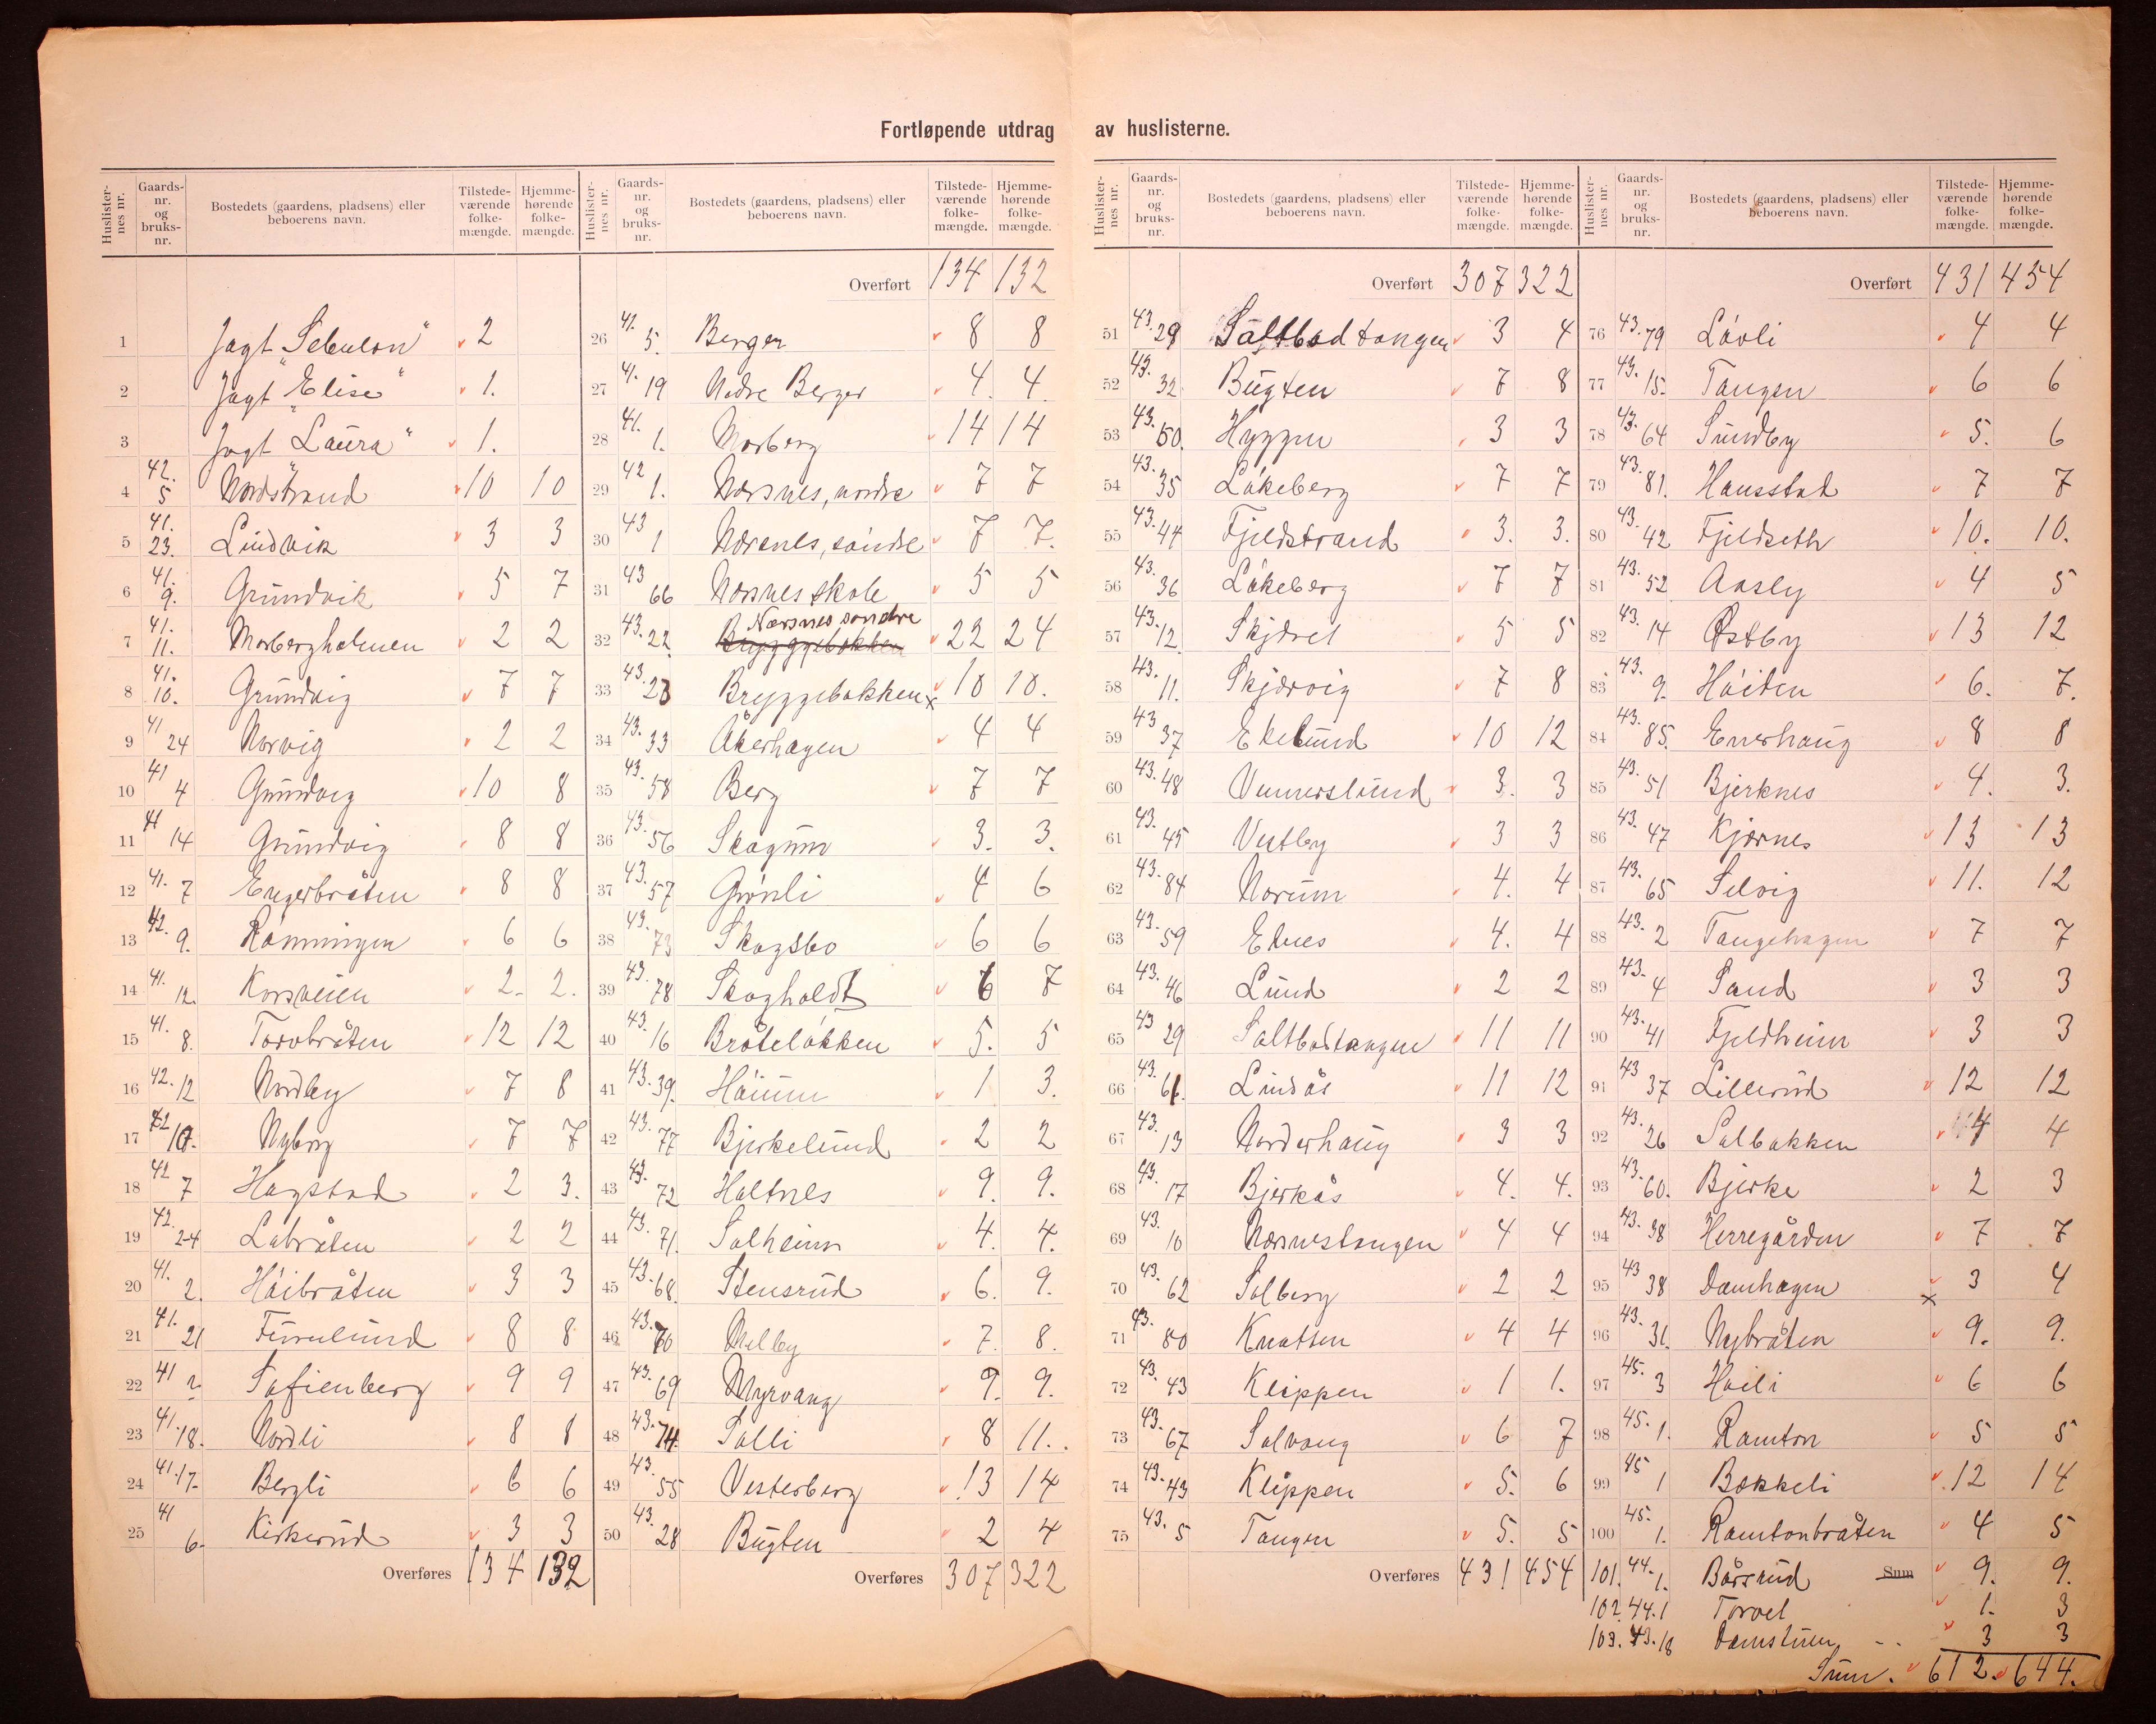 Fortløpende utdrag av huslisterne.
Huslister- nes nr. Gaards- nr. og bruks- nr. Bostedets (gaardens, pladsens) eller beboerens navn. Tilstede- værende folke- mængde. Hjemme- hørende folke- mængde.
1 Jagt "Sebulon" 2
2 Jagt "Elise" 1.
3 Jagt "Laura" 1.
4 42. 5 Nordstrand 10 10
5 41. 23. Lindvik 3 3
6 41. 9. Grundvik 5 7
7 41. 11. Morbergholmen 2 2
8 41. 10. Grundvig 7 7
9 41 24 Norvig 2 2
10 41 4 Grundvig 10 8
11 41 14 Grundvig 8 8
12 41. 7 Engerbråten 8 8
13 42. 9. Rønningen 6 6
14 41. 12. Korsveien 2 2.
15 41. 8. Torvbråten 12 12
16 42. 12 Nordby 7 8
17 42 10. Nyborg 7 7
18 42 7 Hagstad 2 3.
19 42. 24 Labråten 2 2
20 41. 2. Høibråten 3 3
21 41. 21 Furulund 8 8
22 41 2 Sofienberg 9 9
23 41. 18. Nordli 8 8
24 41. 17. Bergli 6 6
25 41 6. Kirkerud 3 3
Overføres 134 132
Huslister- nes nr. Gaards- nr. og bruks- nr. Bostedets (gaardens, pladsens) eller beboerens navn. Tilstede- værende folke- mængde. Hjemme- hørende folke- mængde.
Overført 134 132
26 41. 5. Berger 8 8
27 41. 19 Nedre Berger 4 4
28 41. 1. Morberg 14 14
29 42 1. Nærsnes, nordre 7 7
30 43 1 Nærsnes, søndre 7 7.
31 43 66 Nærsnes skole 5 5
32 43. 22. Bryggebakken Nærsnes søndre 22 24
33 43. 23 Bryggebakken x 10 10.
34 43. 33 Åkerhagen 4 4
35 43. 58 Berg 7 7
36 43. 56 Skogum 3. 3.
37 43. 57 Grønli 4 6
38 43. 73 Skogsbo 6 6
39 43. 78 Skogholdt 6 7
40 43. 16 Bråteløkken 5. 5
41 43. 39. Haium 1 3.
42 43. 77 Bjerkelund 2 2
43 43. 72 Holtnes 9. 9.
44 43. 71. Solheim 4. 4.
45 43. 68. Stensrud 6. 9.
46 43. 70 Melby 7. 8.
47 43. 69 Myrvang 9. 9.
48 43. 74. Solli 8 11.
49 43. 55 Vesterberg 13 14
50 43. 28 Bugten 2 4
Overføres 307 322
Huslister- nes nr. Gaards- nr. og bruks- nr. Bostedets (gaardens, pladsens) eller beboerens navn. Tilstede- værende folke- mængde. Hjemme- hørende folke- mængde.
Overført 307 322
51 43. 29 Saltbodtangen 3 4
52 43. 32 Bugten 7 8
53 43. 50. Hyggen 3 3
54 43. 35 Løkeberg 7 7
55 43. 44 Fjeldstrand 3. 3.
56 43. 36 Løkeberg 7 7
57 43. 12. Skjæret 5 5
58 43. 11. Skjærvig 7 8
59 43 37 Ekelund 10 12
60 43. 48 Vennerslund 3. 3
61 43. 45 Vestby 3 3
62 43. 84 Norum 4. 4
63 43. 59 Eknes 4. 4
64 43. 46 Lund 2 2
65 43 29 Saltbodtangen 11 11
66 43. 61. Lindås 11 12
67 43. 13 Norderhaug 3 3
68 43. 17 Bjerkås 4. 4.
69 43. 10 Nærsnestangen 4 4
70 43. 62 Solberg 2 2
71 43. 80 Knatten 4 4
72 43. 43 Kleppen 1 1.
73 43. 67 Solvang 6 7
74 43. 43 Kleppen 5. 6
75 43. 5 Tangen 5. 5
Overføres 431 454
Huslister- nes nr. Gaards- nr. og bruks- nr. Bostedets (gaardens, pladsens) eller beboerens navn. Tilstede- værende folke- mængde. Hjemme- hørende folke- mængde.
Overført 431 454
76 43. 79 Løvli 4 4
77 43. 15. Tangen 6 6
78 43. 64 Sundby 5. 6
79 43. 81. Hansstad 7 7
80 43. 42 Fjeldseth 10. 10.
81 43. 52 Aasly 4 5
82 43. 14 Østby 13 12
83 43. 9. Høiden 6. 7.
84 43. 85. Enerhaug 8 8
85 43. 51 Bjerknes 4. 3.
86 43. 47 Kjærnes 13 13
87 43. 65 Selvig 11. 12
88 43. 2 Tangehagen 7 7
89 43. 4 Sand 3 3
90 43. 41 Fjeldheim 3 3
91 43 37 Lillerud 12 12
92 43. 26 Solbakken 4 4
93 43. 60. Bjerke 2 3
94 43. 38 Herregården 7 7
95 43 38 Damhagen x 3 4
96 43. 31. Nybråten 9. 9.
97 45. 3 Høili 6 6
98 45. 1. Ramton 5 5
99 45 1 Bekkeli 12 14
100 45. 1. Ramtonbråten 4 5
101. 44. 1. Bårsrud Sum 9. 9.
102. 44. 1 Torvet 1. 3
103. 43. 18 Damstuen 3 3
Sum. 612. 644.